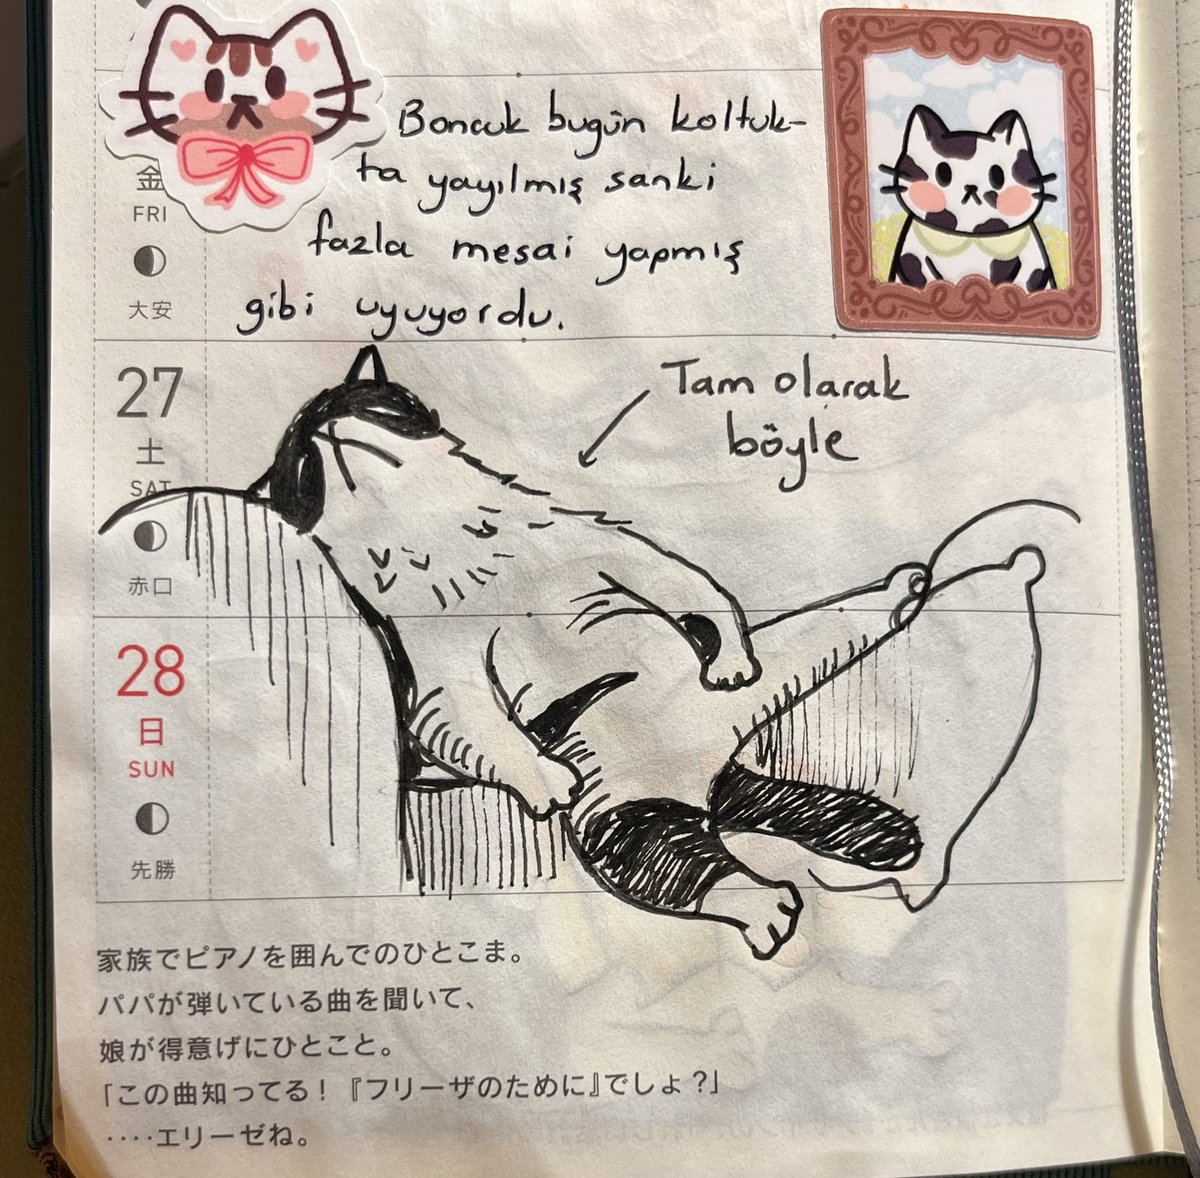 Boncuk bugün koltuk-
ta yayılmış sanki
fazla mesai yapmış
gibi uyuyordu.
金
FRI
大安
Tam olarak
böyle
27
土
SAT
赤口
28
日
SUN
先勝
家族でピアノを囲んでのひとこま。
パパが弾いている曲を聞いて、
娘が得意げにひとこと。
「この曲知ってる！『フリーザのために』でしょ？」
‥‥エリーゼね。